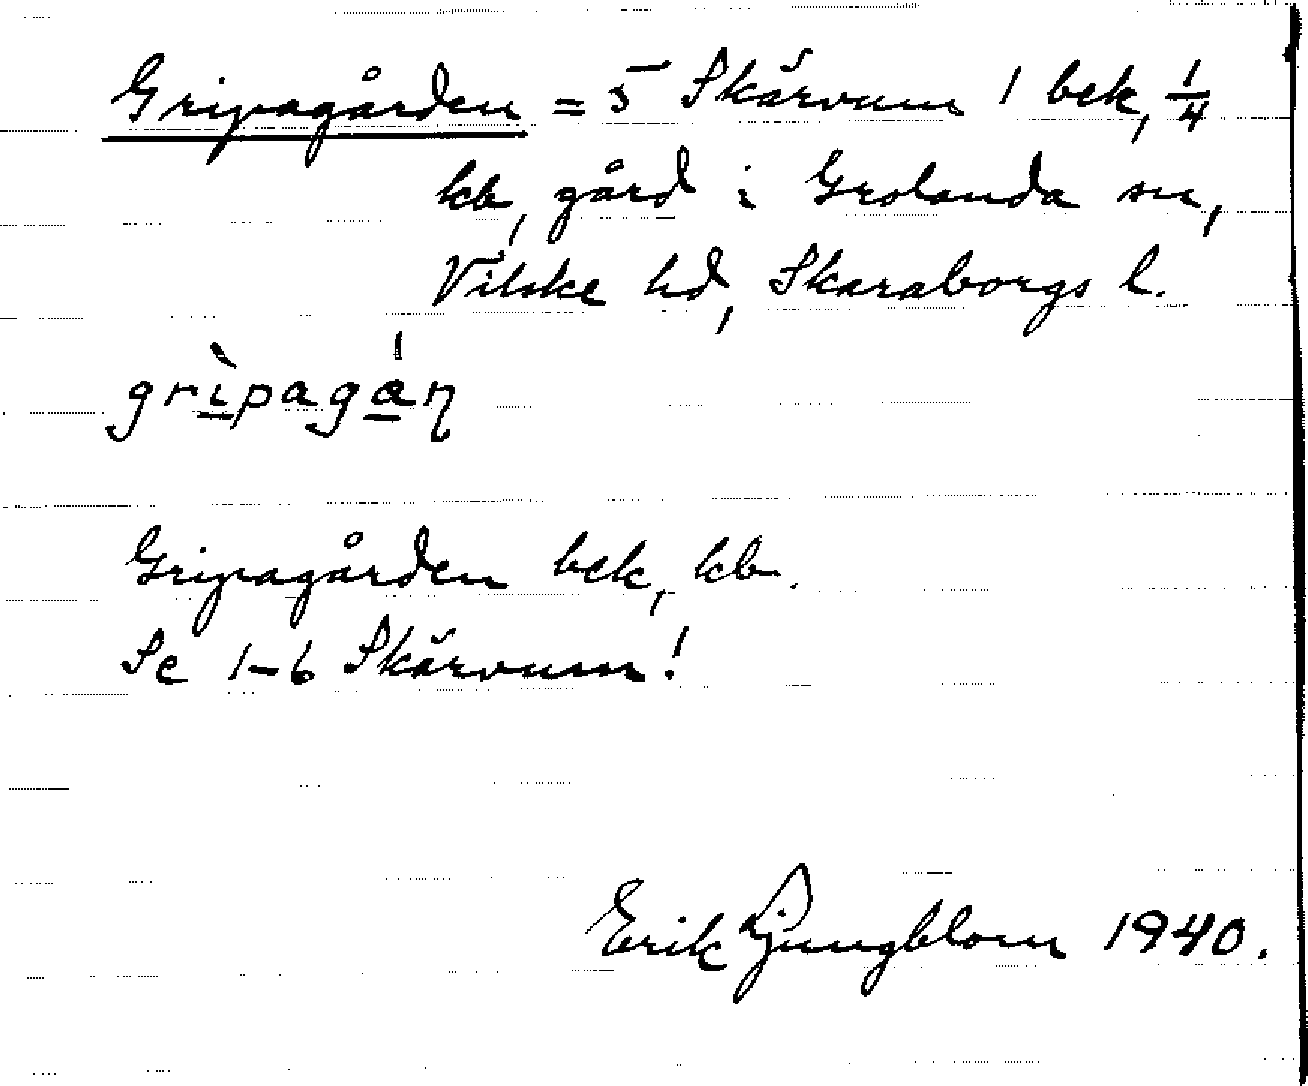 Gripagården = 5 Skärvum 1 bek, 1/4
kb, gård i Grolanda sn,
Vilske hd, Skaraborgs l.
grìpagán
Gripagården bek, kb.
Se 1-6 Skärvum!
Erik Ljungblom 1940.